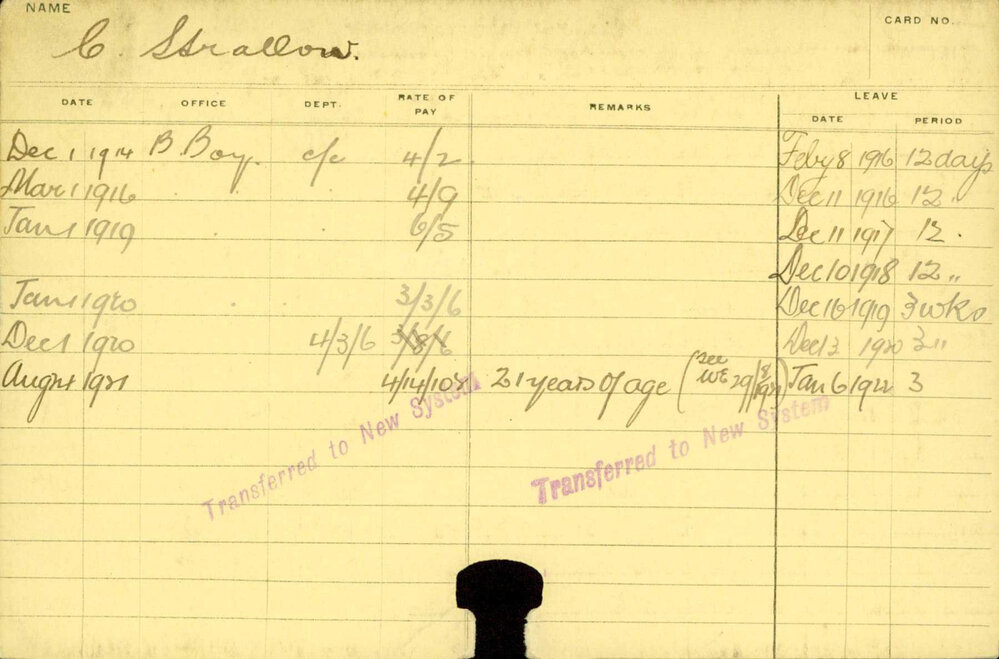 NAME
C. Strallow.
CARD NO.
DATE OFFICE DEPT. RATE OF PAY REMARKS LEAVE
DATE PERIOD
Dec 1 1914 B. Boy. c/c 4/2. Feby 8 1916 12 days
Mar 1 1916 4/9 Dec 11 1916 12 "
Jan 1 1919 6/5 Dec 11 1917 12 .
Dec 10 1918 12 "
Jan 1 1920 3/3/6 Dec 16 1919 3 wks
Dec 1 1920 4/3/6 3/8/6 Dec 13 1920 3 "
Aug 1921 4/14/10 21 years of age (see WE 29/8/1921) Jan 6 1922 3
Transferred to New System
Transferred to New System